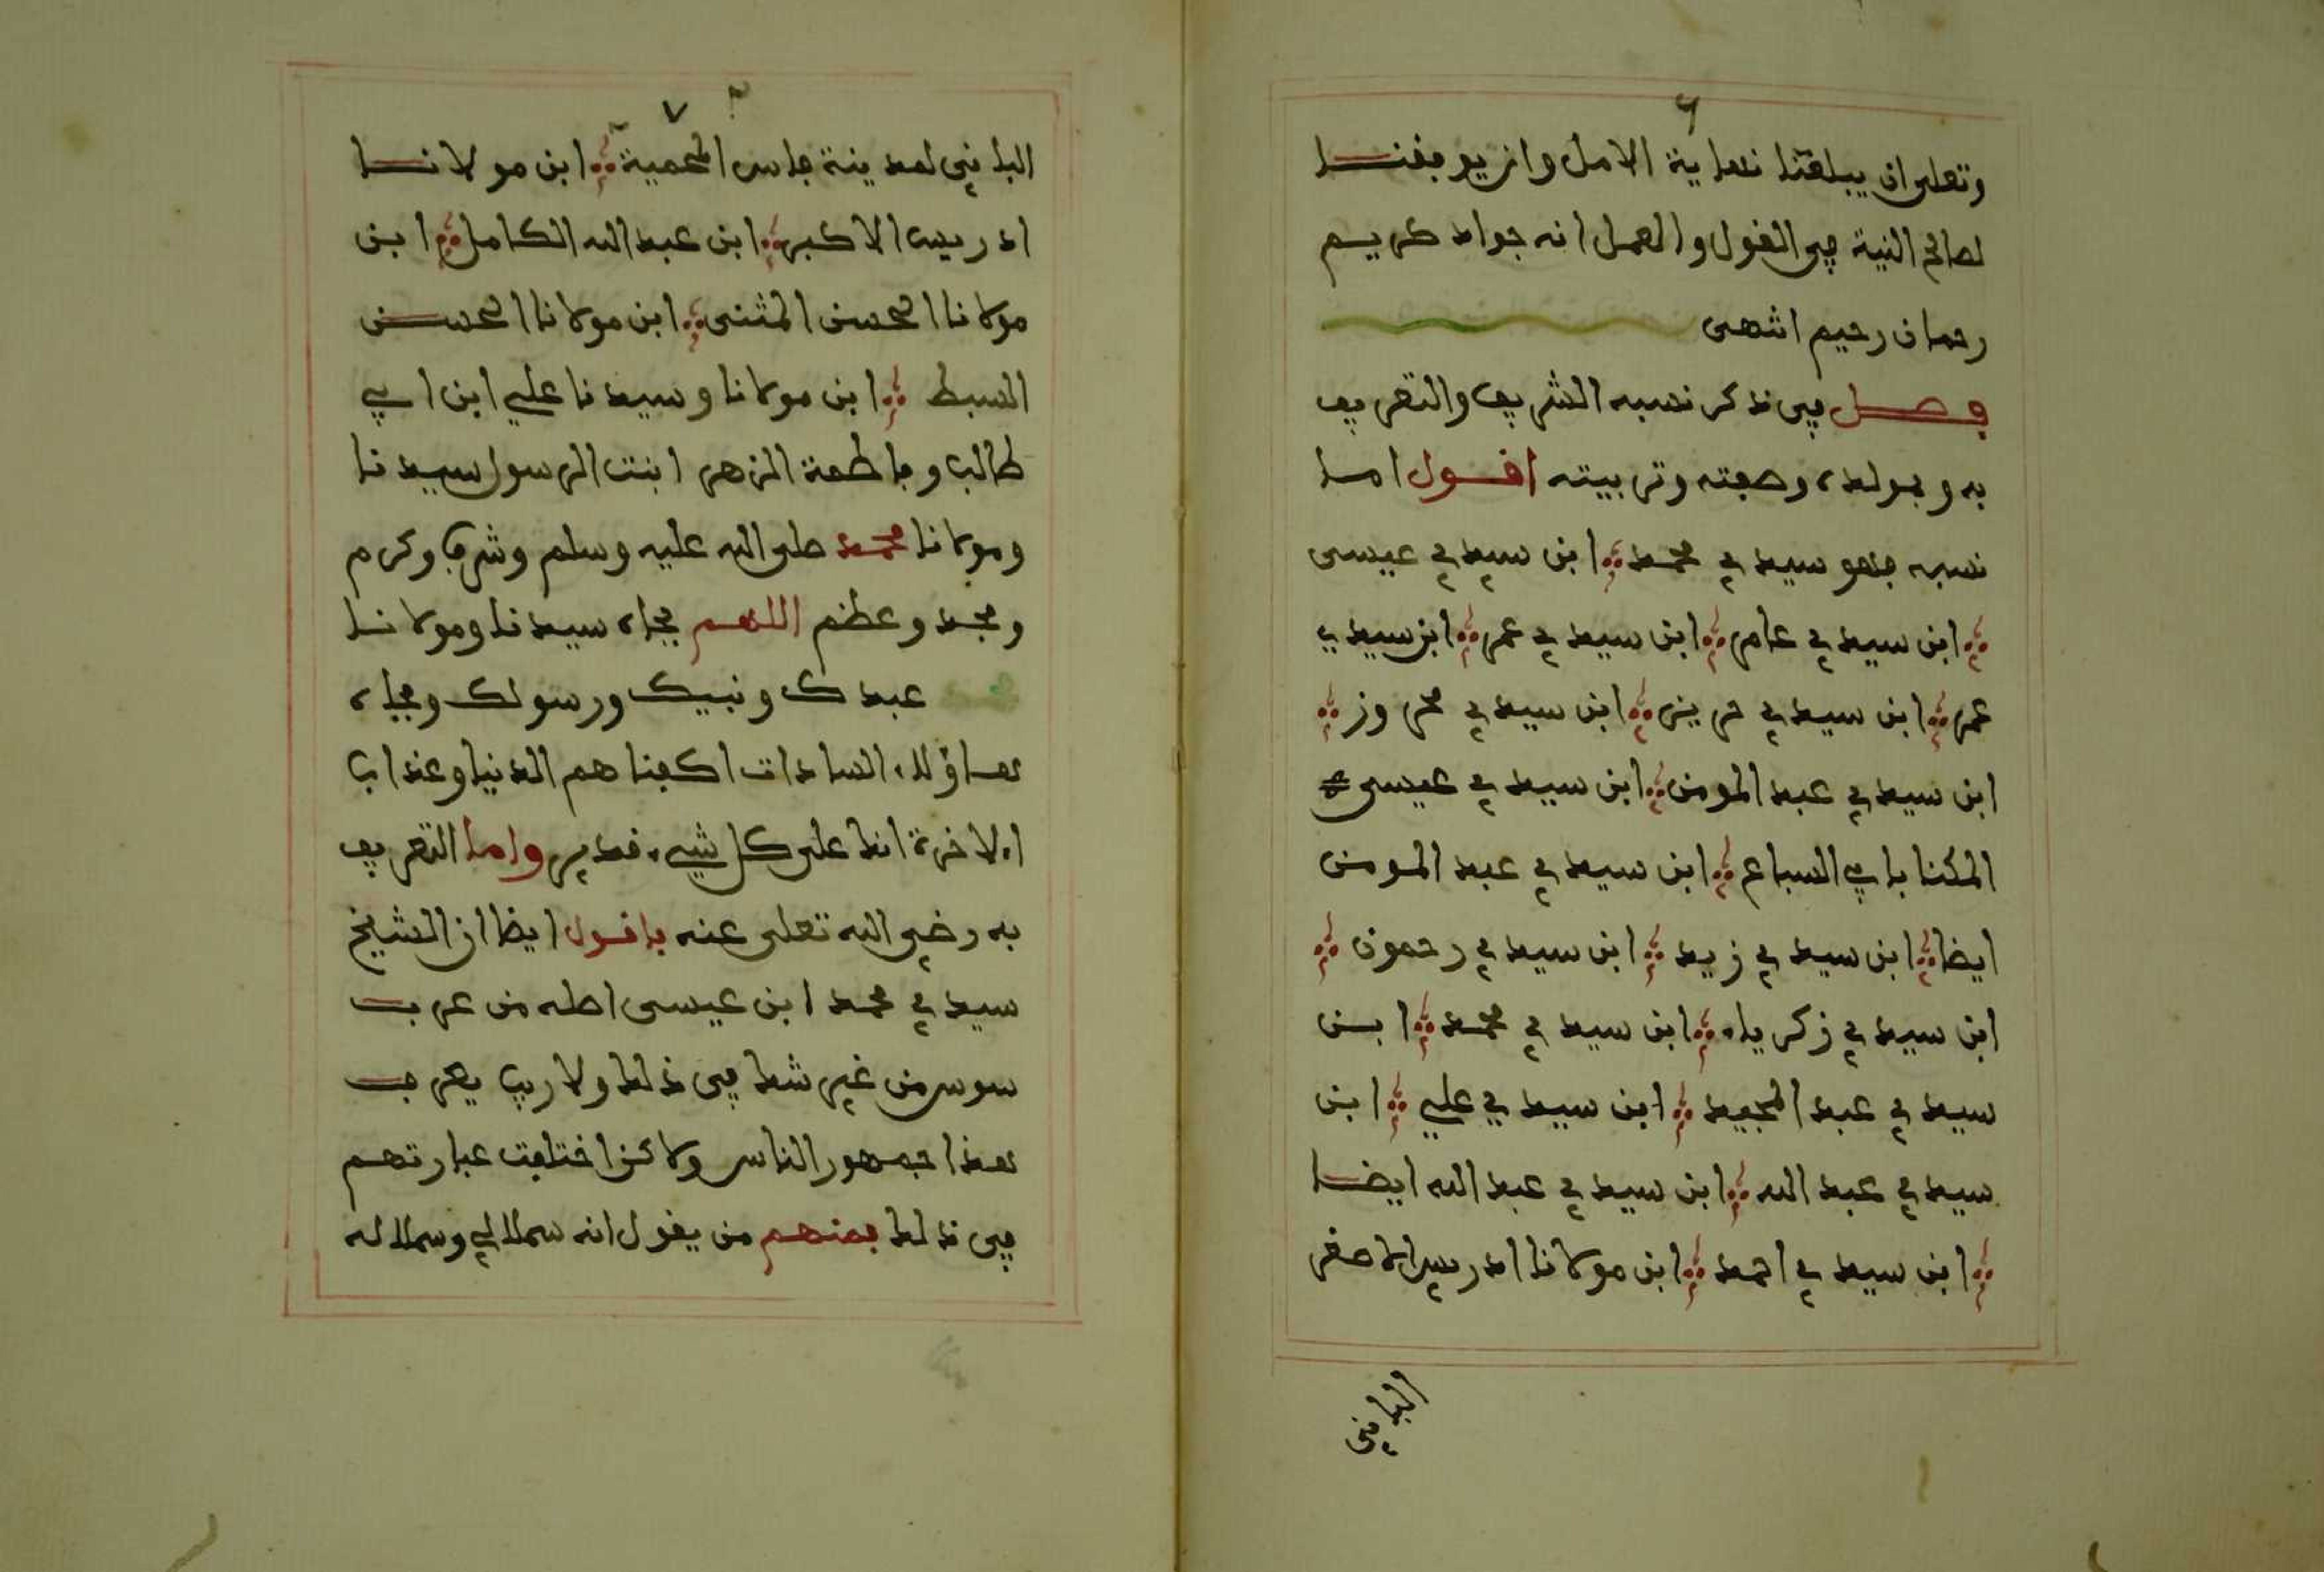 ٦
وتعلى ان يبلغنا نهاية الامل وان يوفقنا
لصالح النية في القول والعمل انه جواد كريم
رحمان رحيم انتهى
فصل في ذكر نسبه الشريف والتعريف
به وبولده وصفته وتربيته اقول اما
نسبه فهو سيدي محمد ابن سيدي عيسى
ابن سيدي عامر ابن سيدي عمر ابن سيدي
عمر ابن سيدي حريز ابن سيدي محروز
ابن سيدي عبد المومن ابن سيدي عيسى
المكنا بابي السباع ابن سيدي عبد المومن
ايضا ابن سيدي زيد ابن سيدي رحمون
ابن سيدي زكرياء ابن سيدي محمد ابن
سيدي عبد المجيد ابن سيدي علي ابن
سيدي عبد الله ابن سيدي عبد الله ايضا
ابن سيدي احمد ابن مولانا ادريس الاصغر
الباني
٧
الباني لمدينة فاس المحمية ابن مولانا
ادريس الاكبر ابن عبد الله الكامل ابن
مولانا الحسن المثنى ابن مولانا الحسن
السبط ابن مولانا وسيدنا علي ابن ابي
طالب وفاطمة الزهر ابنت الرسول سيدنا
ومولانا محمد صلى الله عليه وسلم وشرف وكرم
ومجد وعظم اللهم بجاه سيدنا ومولانا
عبدك ونبيك ورسولك وبجاه
هاؤلاء السادات اكفنا هم الدنيا وعذاب
الاخرة انك على كل شيء قدير واما التعريف
به رضي الله تعلى عنه فاقول ايضا ان الشيخ
سيدي محمد ابن عيسى اصله من عرب
سوس من غير شك في ذلك ولا ريب يعرف
هذا جمهور الناس ولاكن اختلفت عبارتهم
في ذلك فمنهم من يقول انه سملالي وسملاله